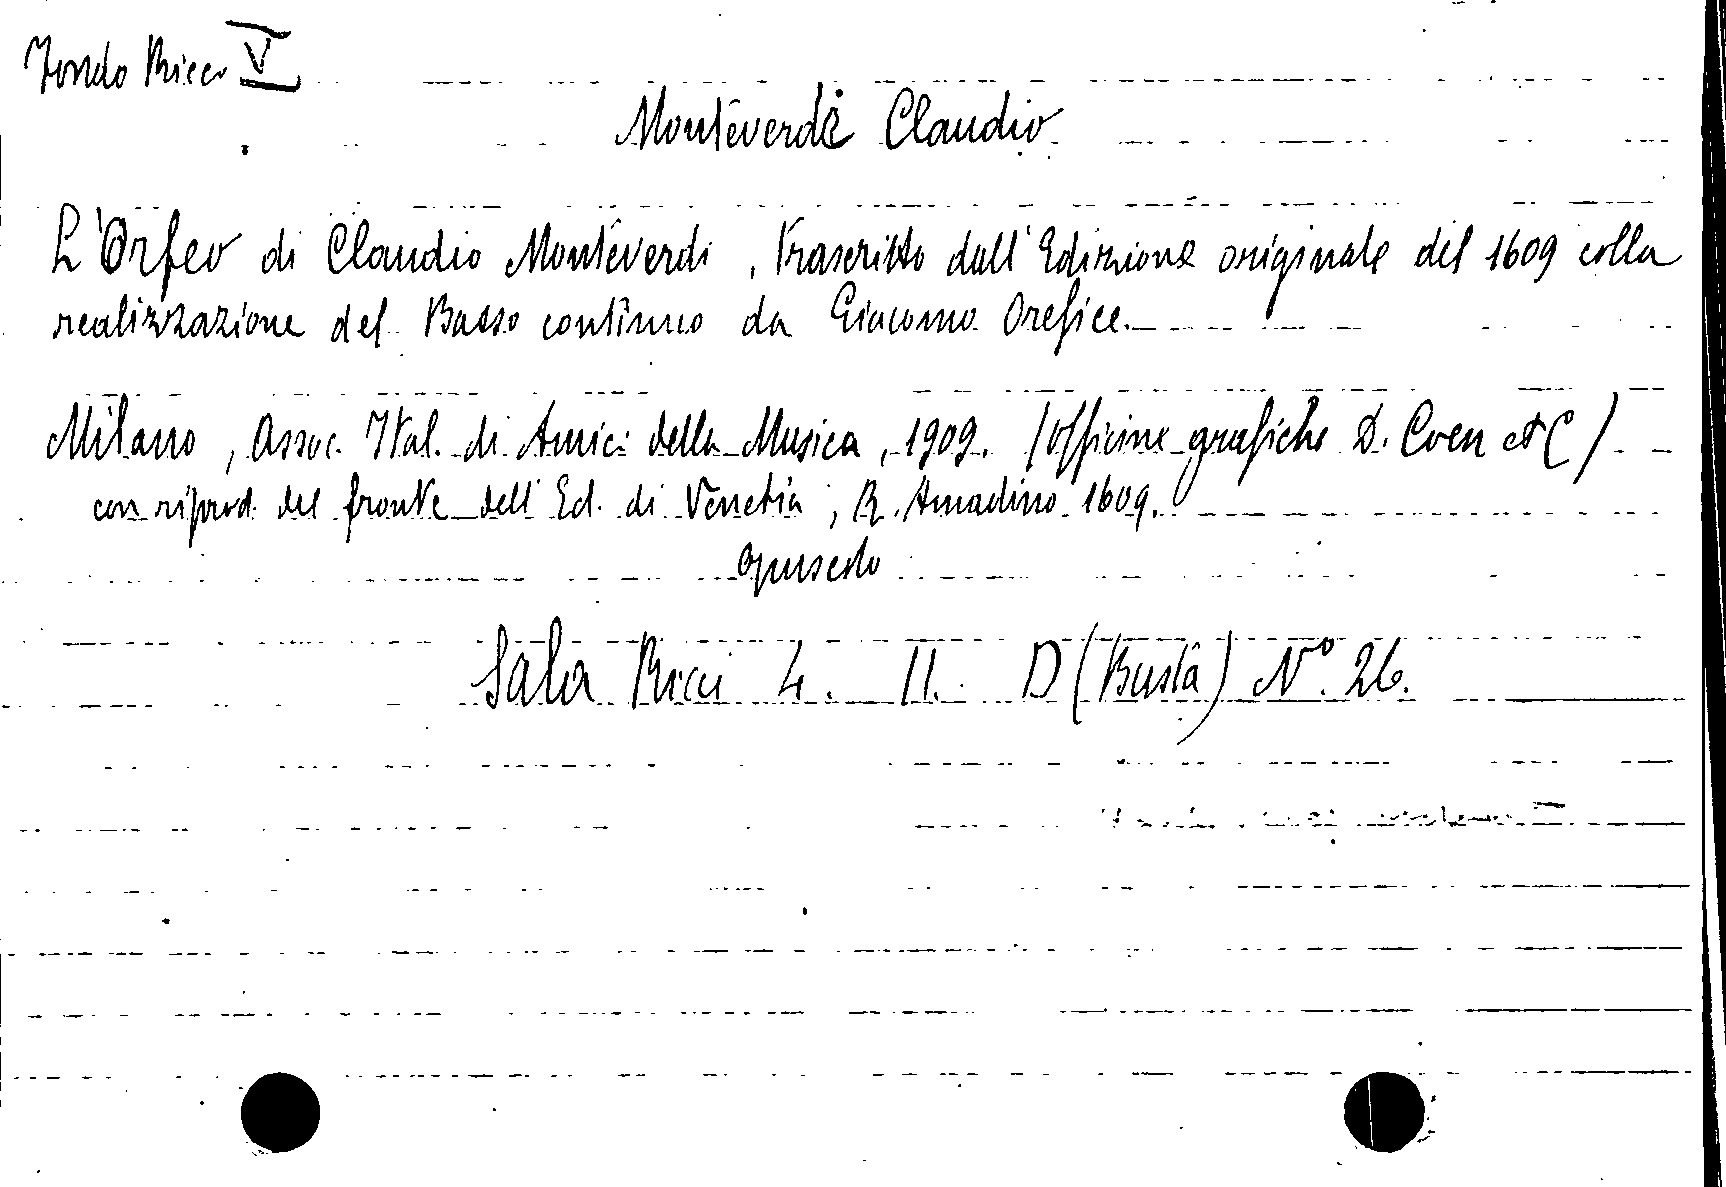 Fondo Ricci V
Monteverdi Claudio
L'Orfeo di Claudio Monteverdi, Trascritto dall'Edizione originale del 1609 colla
realizzazione del Basso continuo da Giacomo Orefice.
Milano, Assoc. Ital. di Amici della Musica, 1909. (Officine grafiche D. Coen et C)
con riprod. del fronte dell'Ed. di Venetia, R. Amadino 1609.
opuscolo
Sala Ricci 4. II. D (Busta) N° 26.